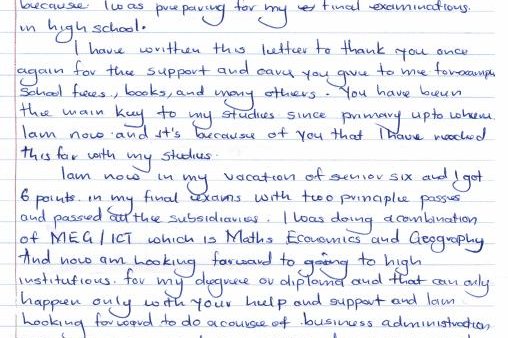 because I was preparing for my final examinations.
in high school.
I have written this letter to thank you once
again for the support and care you give to me forexample
School fees, books, and many others. You have been
the main key to my studies since primary upto where
Iam now and it's because of you that I have reached
this far with my studies.
Iam now in my vacation of senior six and I got
6 points. in my final exams with two principle passes
and passed all the subsidiaries. I was doing acombination
of MEG/ICT which is Maths Economics and Geography
And now am looking forward to going to high
institutions. for my degree or diploma and that can only
happen only with your help and support and Iam
looking forward to do acourse of business administration